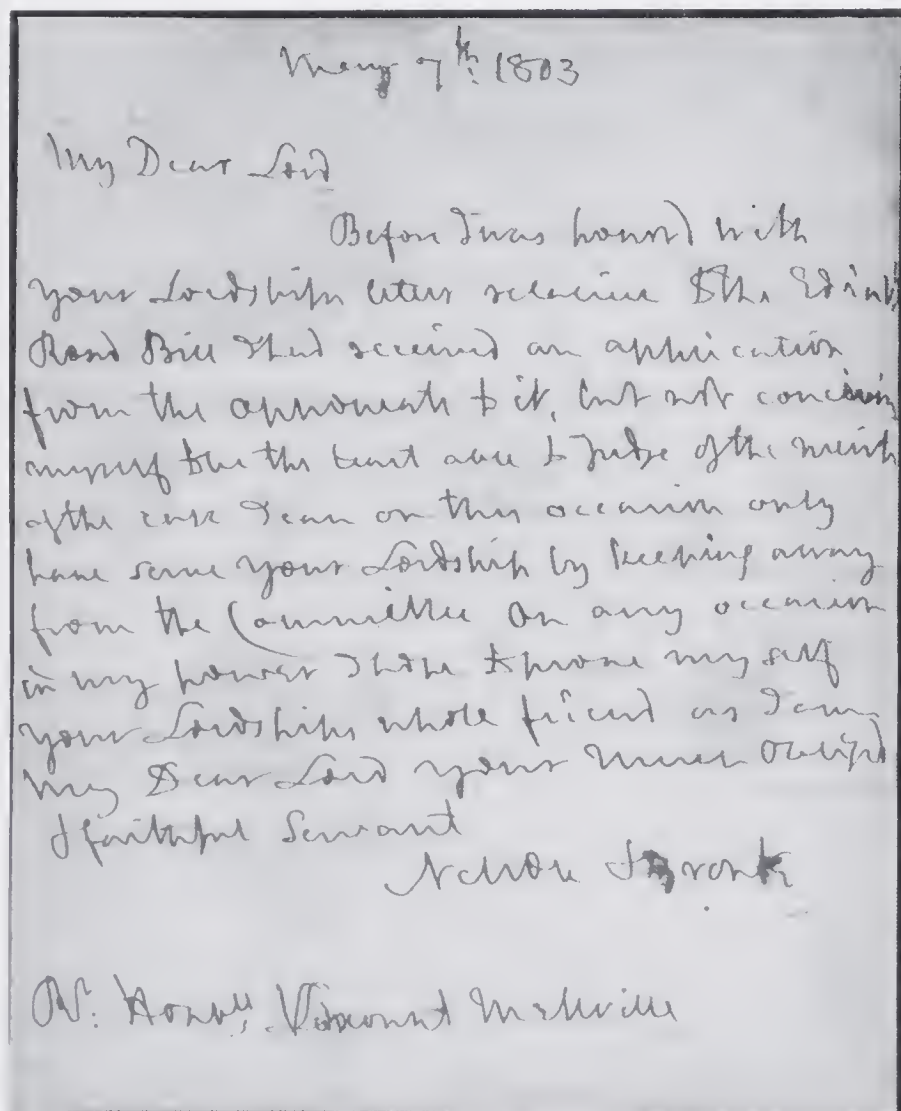 May 7th: 1803
My Dear Lord
Before I was honor'd with
your Lordships letter relative to the Edinb
Road Bill I had received an application
from the opponents to it, but not conceiving
myself the least able to Judge of the merits
of the case I can on this occasion only
have serve your Lordship by keeping away
from the Committee On any occasion
in my power I hope to prove myself
your Lordships whole friend as I am
My Dear Lord your much Oblig'd
& faithful Servant
Nelson & Bronte
Rt: Honble: Viscount Melville